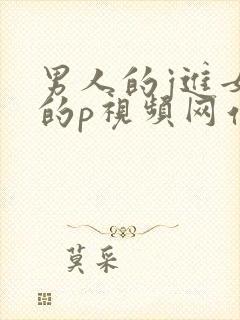 男人的j進女
的p視頻网
莫采